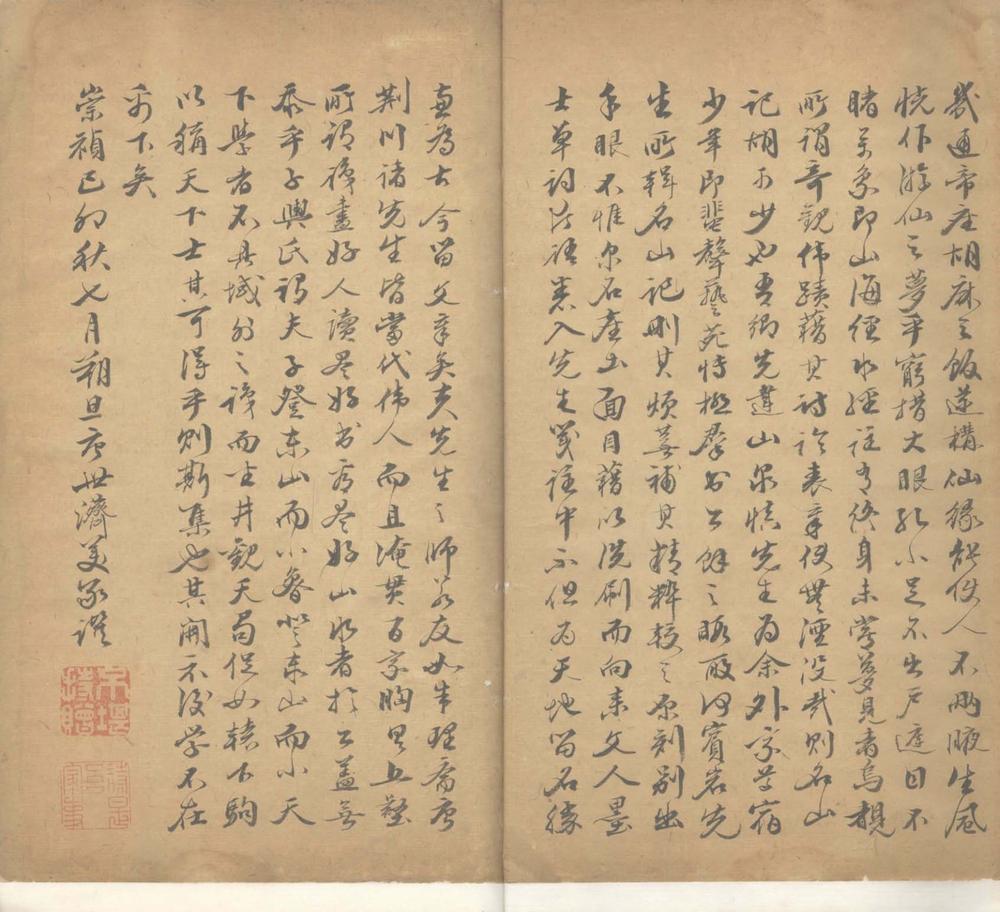 幾通帝座胡麻之飯遂構仙緣能使人不兩腋生風
恍作游仙之夢乎窮措大眼孔小足不出戶庭目不
睹万象即山海經水經註有終身未嘗夢見者烏覩
所謂奇觀偉蹟藉其詩論表章使無湮沒哉則名山
記胡可少也吾鄉先達山泉慎先生為余外家尊宿
少年即蜚聲藝苑恃極群書公餘之暇取何賓岩先
生所輯名山記刪其煩蕪補其精粹較之原刻別出
手眼不惟泉石產出面目藉以洗刷而向來文人墨
士單詞片語悉入先生箋註中不但為天地留名勝
直為古今留文章矣夫先生之師若友如朱理齋唐
荊川諸先生皆當代偉人而且淹貫百家胸具丘壑
所謂獲盡好人讀尽好書看尽好山水者於公蓋無
忝乎子輿氏謂夫子登東山而小魯登泰山而小天
下學者不具域外之識而坐井觀天局促如轅下駒
以稱天下士其可得乎則斯集也其開示後學不在
禹下矣
崇禎己卯秋七月朔旦唐世濟美承譔